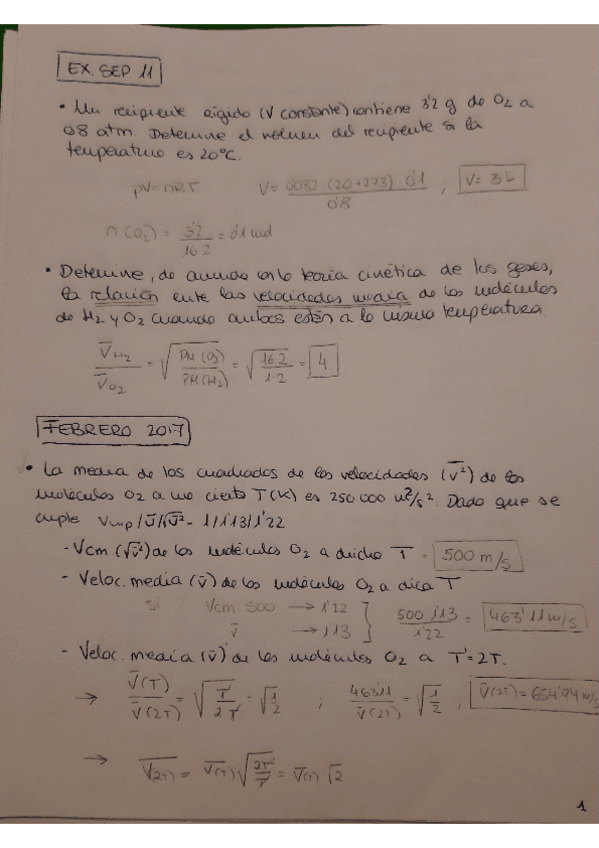 EX. SEP 11
• Un recipiente rígido (V constante) contiene 3'2 g de O₂ a
0'8 atm. Determine el volumen del recipiente si la
temperatura es 20°C.
pV = nRT V = 0'082 · (20+273) · 0'1 / 0'8 , V = 3L
n (O₂) = 3'2 / 16·2 = 0'1 mol
• Determine, de acuerdo con la teoría cinética de los gases,
la relación entre las velocidades media de las moléculas
de H₂ y O₂ cuando ambas estén a la misma temperatura.
V̄H₂ / V̄O₂ = √(PM(O₂) / PM(H₂)) = √(16·2 / 1·2) = 4
FEBRERO 2017
• La media de los cuadrados de las velocidades (v̄²) de las
moléculas O₂ a una cierta T(K) es 250 000 m²/s². Dado que se
cumple Vmp/V̄/√v̄² = 1/1'13/1'22
- Vcm (√v̄²) de las moléculas O₂ a dicha T = 500 m/s
- Veloc. media (v̄) de las moléculas O₂ a dica T
si Vcm 500 → 1'22
v̄ → 1'13 } 500·1'13 / 1'22 = 463'11 m/s
- Veloc. media (v̄) de las moléculas O₂ a T'=2T.
→ V̄(T) / V̄(2T) = √(T / 2T) = √(1/2) ; 463'11 / V̄(2T) = √(1/2) , V̄(2T) = 654'94 m/s
→ V̄(2T) = V̄(T) √(2T/T) = V̄(T) √2
1